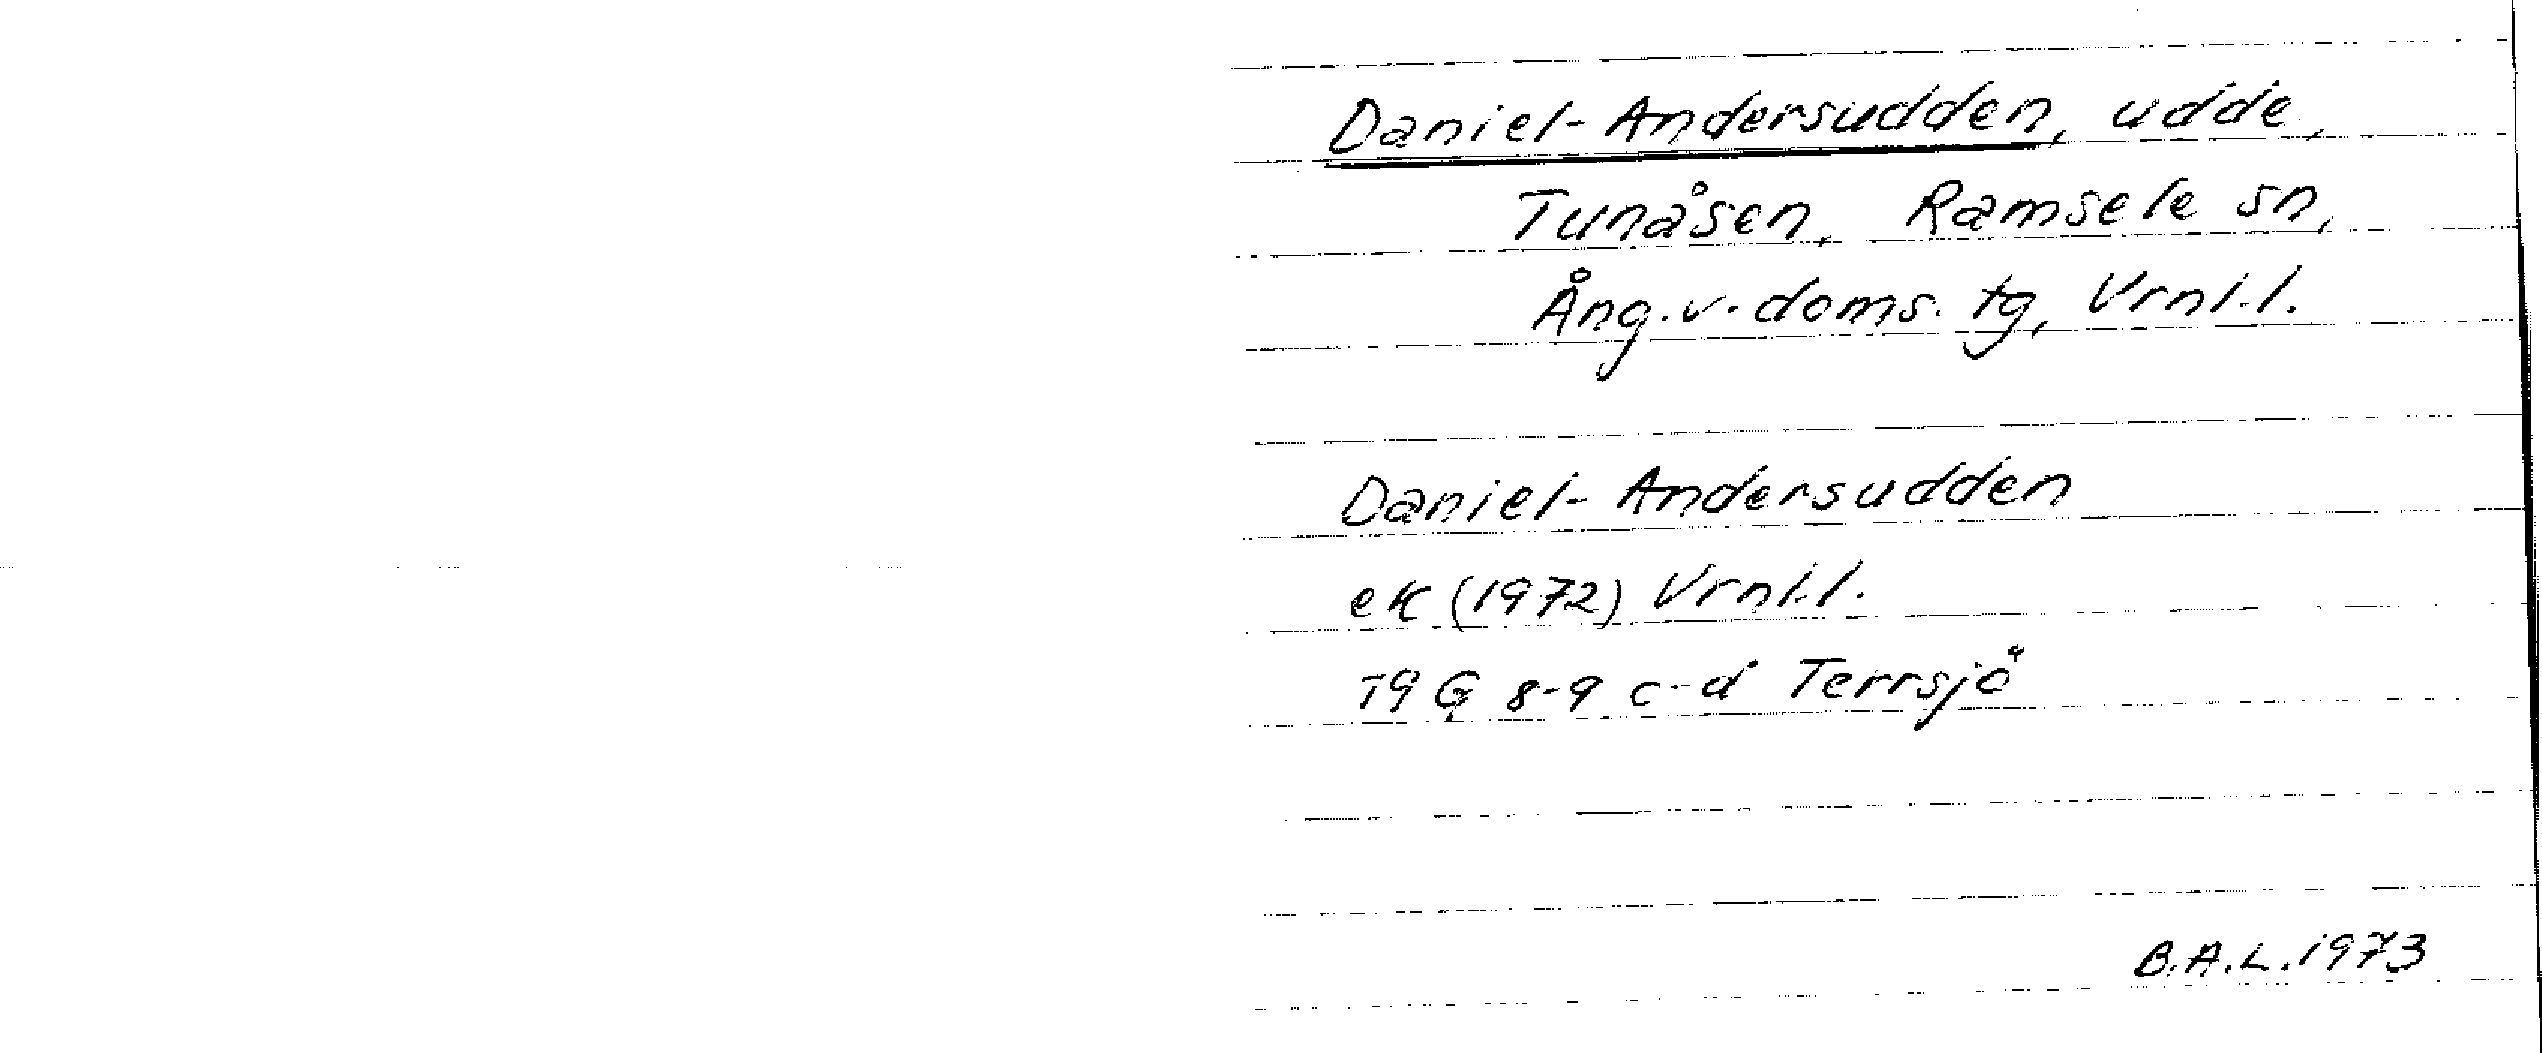 Daniel-Andersudden, udde,
Tunåsen, Ramsele sn,
Ång.v.doms.tg, Vrnl.l.
Daniel-Andersudden
ek (1972) Vrnl.l.
19 G 8-9 c-d Terrsjö
B.A.L. 1973